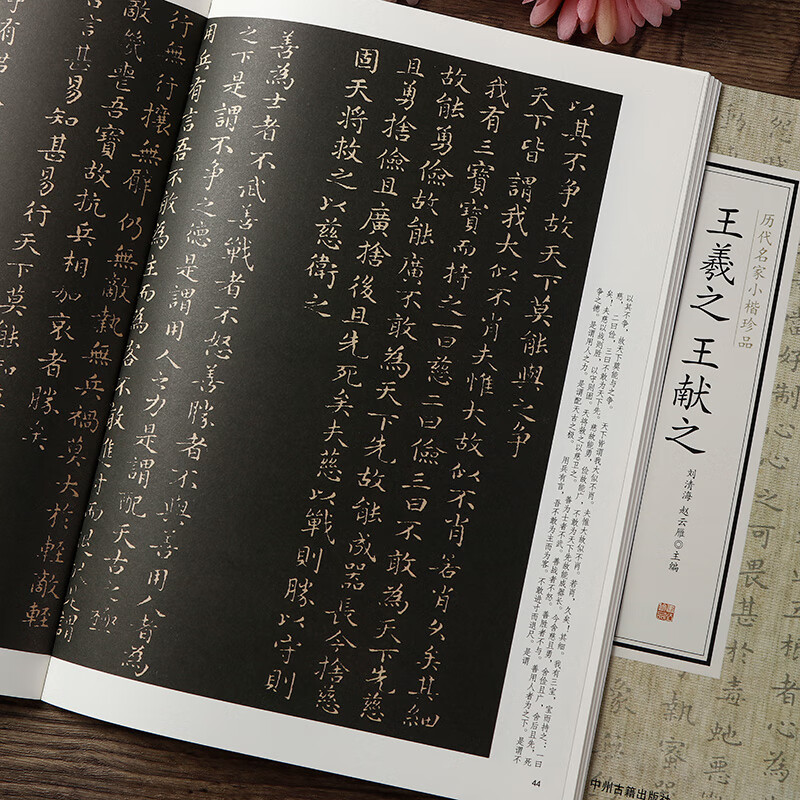 以其不争故天下莫能與之争
天下皆謂我大似不肖夫惟大故似不肖若肖久矣其細
我有三寶寶而持之一曰慈二曰儉三曰不敢為天下先慈
故能勇儉故能廣不敢為天下先故能成器長今捨慈
且勇捨儉且廣捨後且先死矣夫慈以戰則勝以守則
固天將救之以慈衛之
善為士者不武善戰者不怒善勝者不與善用人者為
之下是謂不争之德是謂用人之力是謂配天古之極
用兵有言吾不敢為主而為客不敢進寸而退尺是謂
行無行攘無臂仍無敵執無兵禍莫大於輕敵輕
敵幾喪吾寶故抗兵相加哀者勝矣
吾言甚易知甚易行天下莫能知
以其不争，故天下莫能与之争。 天下皆谓我大似不肖。夫惟大故似不肖。若肖，久矣！其细。我有三宝，宝而持之：一曰
慈，二曰俭，三曰不敢为天下先。慈故能勇，俭故能广，不敢为天下先故能成器长。今舍慈且勇，舍俭且广，舍后且先，死
矣！夫慈以战则胜，以守则固。天将救之以慈卫之。 善为士者不武。善战者不怒。善胜者不与。善用人者为之下。是谓不
争之德。是谓用人之力。是谓配天古之极。 用兵有言，吾不敢为主而为客。不敢进寸而退尺。是谓
44
历代名家小楷珍品
王羲之 王献之
刘清海 赵云雁◎主编
中州古籍出版社
之可畏甚於毒蛇